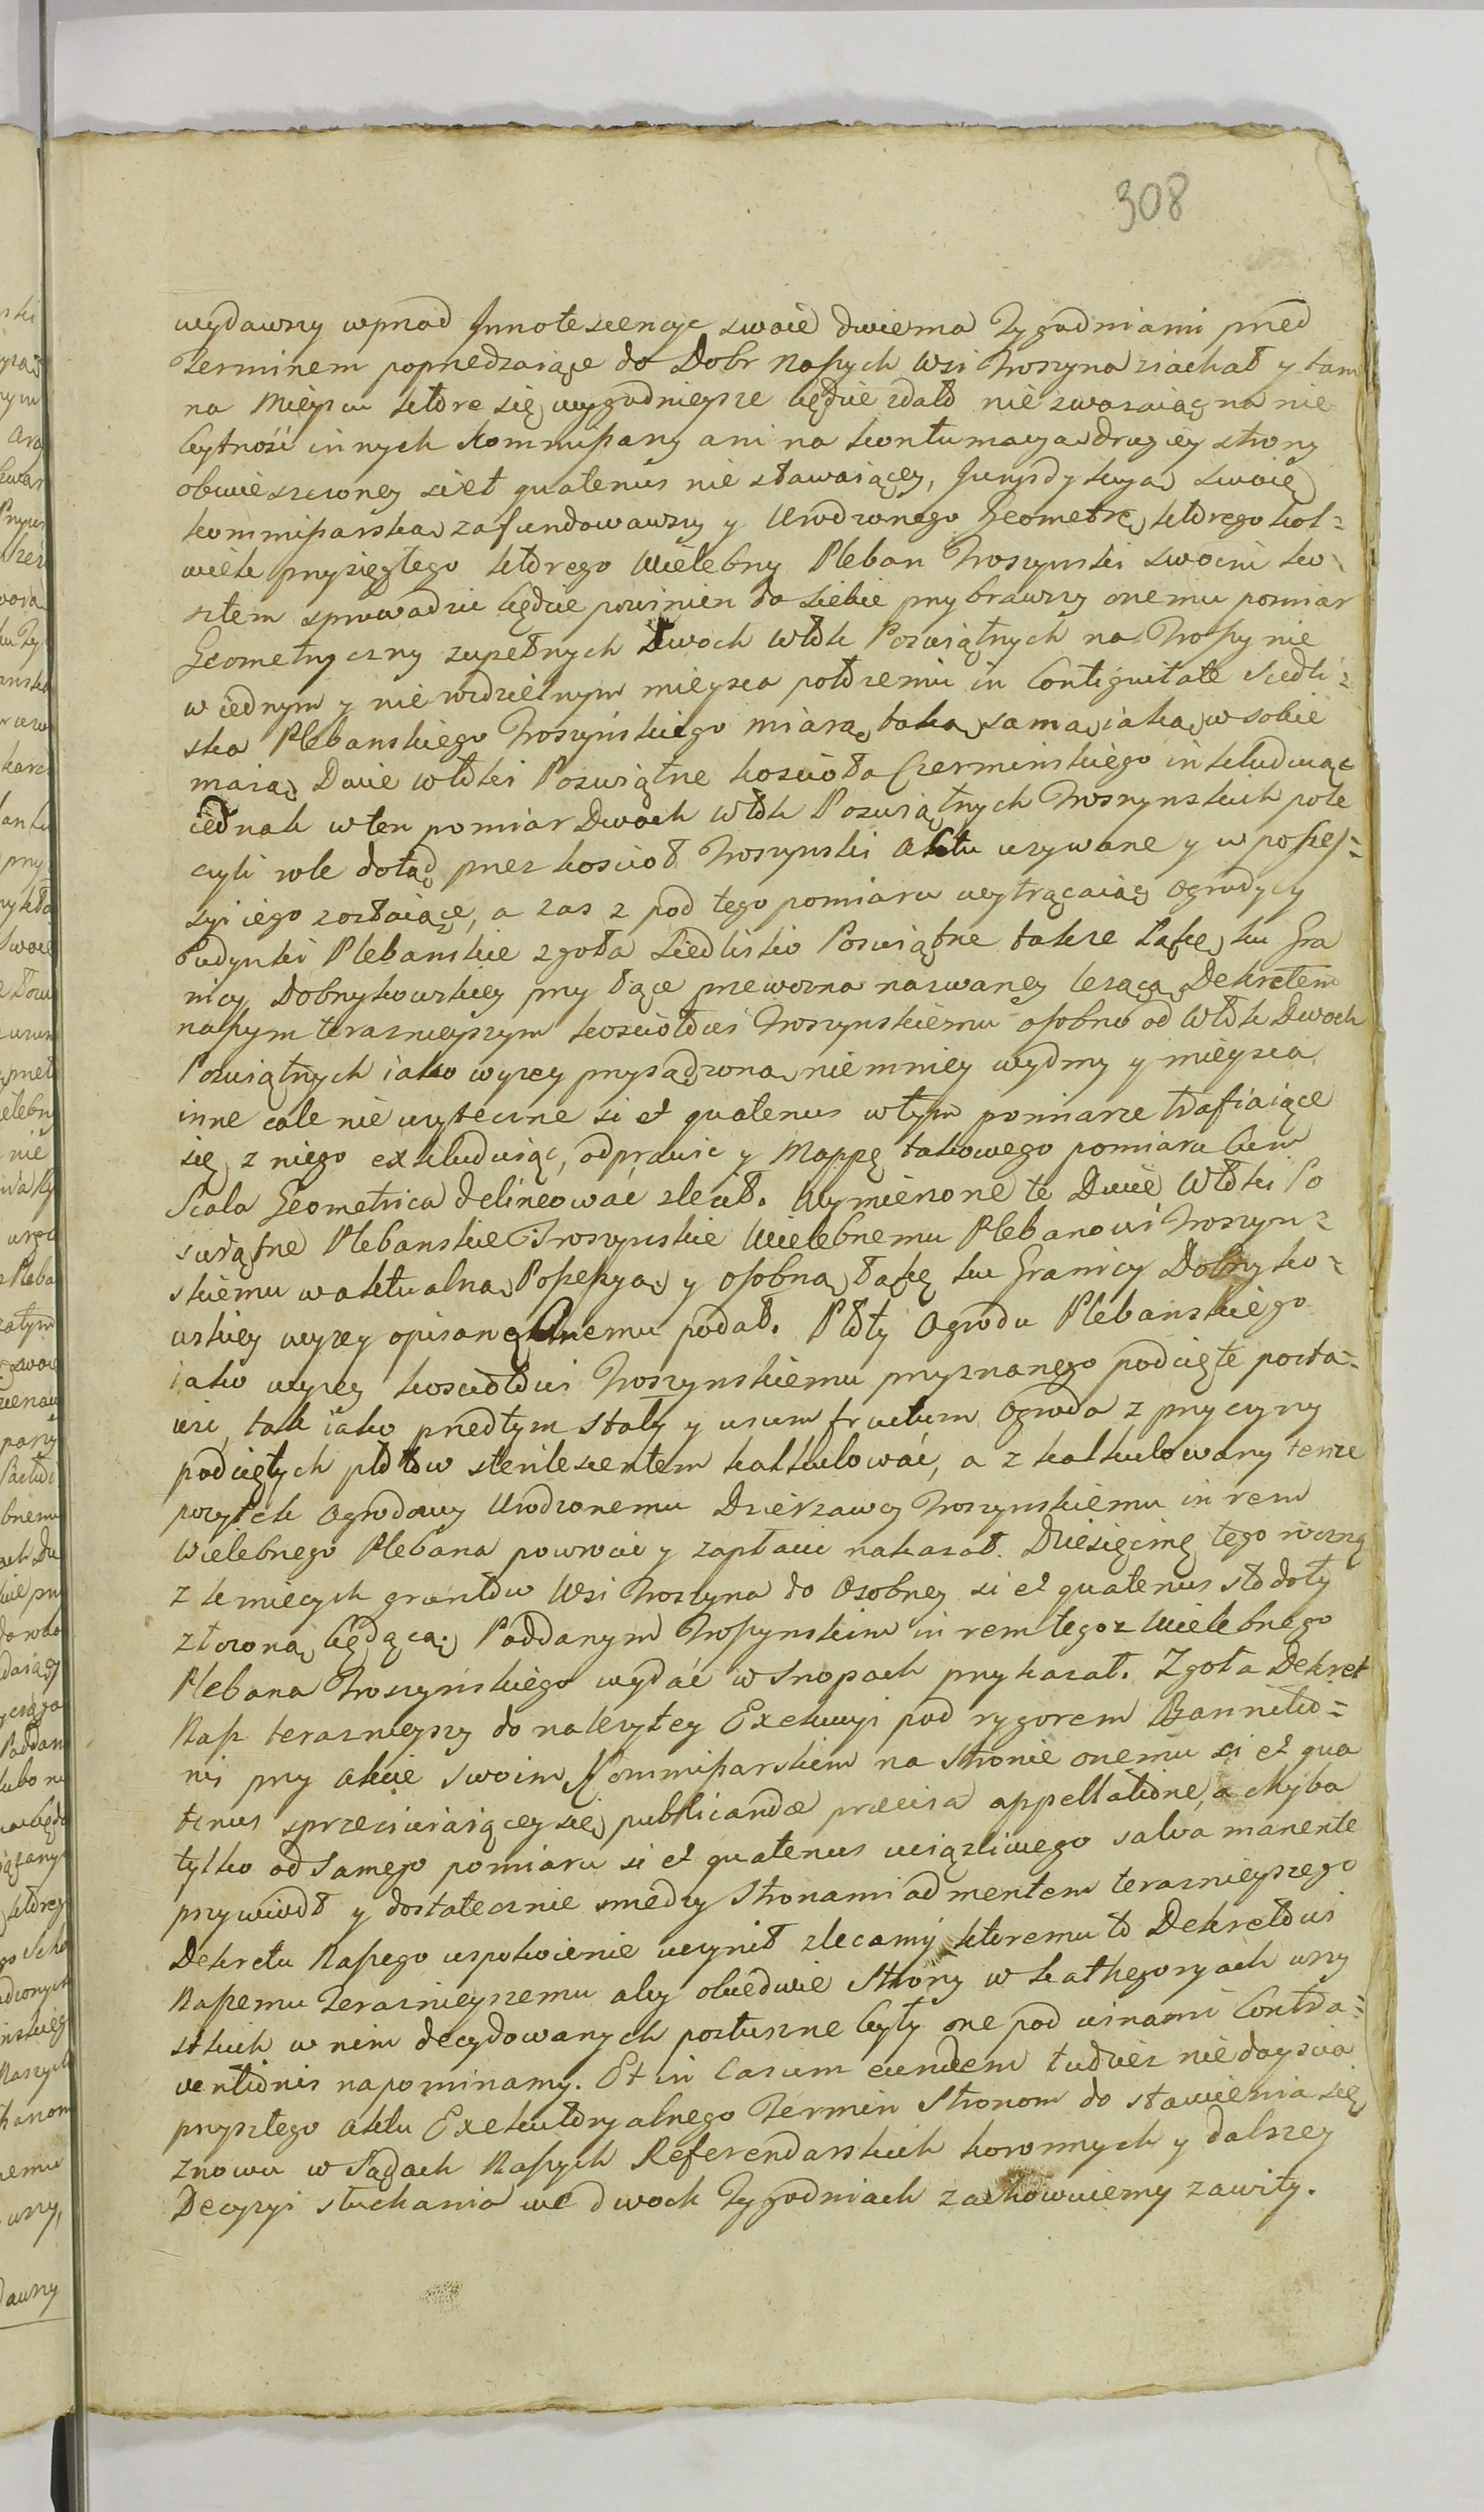 308
wydawszy wprzod Innotescencye swoie dwiema Tygodniami przed
Terminem poprzedzaiące do Dobr Naszych Wsi Troszyna ziachał y tam
na Mieyscu ktore się wygodnieysze będzie zdało nie zwazaiąc na nie
bytność innych Kommissarzy ani na kontumacyą drugiey strony
obwieszczoney si et quatenus nie stawaiącey, Juryzdykcyą swoię
kommissarską zafundowawszy y Urodzonego Geometrę ktoregokol=
wiek przysięgłego ktorego Wielebny Pleban Troszynski swoim ko=
sztem sprowadzić będzie powinien do siebie przybrawszy onemu pomiar
Geometryczny zupełnych Dwoch włok Poswiątnych na Troszynie
w iednym y nierozdzielnym mieyscu połozeniu in Contiguitate Siedli=
ska Plebanskiego Troszynskiego miarą taką samą iaką w sobie
maią Dwie włoki Poswiątne koscioła Czerminskiego inkluduiąc
iednak w ten pomiar Dwoch włok Poswiątnych Troszynskich pole
czyli role dotąd przez koscioł Troszynski Aktu uzywane y w possesz=
syi iego zostaiące, a zas z pod tego pomiaru wytrącaiąc ogrody czy
budynki Plebanskie zgoła Siedlisko Poswiątne takze Łąkę ku Gra
nicy Dobrykowskiey przy Łące przewozna nazwaney lezącą Dekretem
naszym terazniejszym kosciołowi Troszynskiemu osobno od Włok Dwoch
Poswiątnych iako wyzey przysądzoną niemniey wydmy y mieysca
inne cale nieuzyteczne si et quatenus w tym pomiarze trafiaiące
się z niego exkluduiąc, odprawić y Mappę takowego pomiaru Cum
Scala Geometrica delineować zlecił. Wymienione te Dwie Włoki Po
swiątne Plebanskie Troszynskie Wielebnemu Plebanowi Troszyn=
skiemu w aktualną Possessyą y osobną Łąkę ku Granicy Dobryko=
wskiey wyzey opisaną Onemu podał. Płoty Ogrodu Plebanskiego
iako wyzey kosciołowi Troszynskiemu przyznanego podcięte posta=
wić, tak iako przedtym stały y usum fructum Ogroda z przyczyny
podciętych płotow sterilescentem kalkulować, a zkalkulowany tenze
pozytek Ogrodowy Urodzonemu Dzierzawcy Troszynskiemu in rem
Wielebnego Plebana powrocić y zapłacić nakazał. Dziesięcinę tegoroczną
z kmiecych gruntow Wsi Troszyna do Osobney si et quatenus stodoły
złozoną będącą Poddanym Troszynskim in rem tegoz Wielebnego
Plebana Troszynskiego wydać w Snopach przykazał. Zgoła Dekret
Nasz terazniejszy do nalezytey Exekucyi pod rygorem Bannitio=
nis przy akcie swoim Kommissarskim na stronie onemu si et qua
tenus sprzeciwiaiącey się publicandæ præcisa appellatione, a chyba
tylko od samego pomiaru si et quatenus uciązliwego salva manente
przywiodł y dostatecznie między Stronami ad mentem terazniejszego
Dekretu Naszego uspokoienie uczynił zlecamy ktoremu to Dekretowi
Naszemu Terazniejszemu aby obiedwie Strony w kathegoryach wszy
stkich w nim decydowanych posłuszne były one pod winami Contra=
ventionis napominamy. Et in Casum eundem tudziez niedoyscia
przyszłego aktu Exekutoryalnego Termin Stronom do stawienia się
znowu w Sądach Naszych Referendarskich koronnych y dalszey
Decyzyi słuchania we dwoch Tygodniach zachowuiemy zawity.